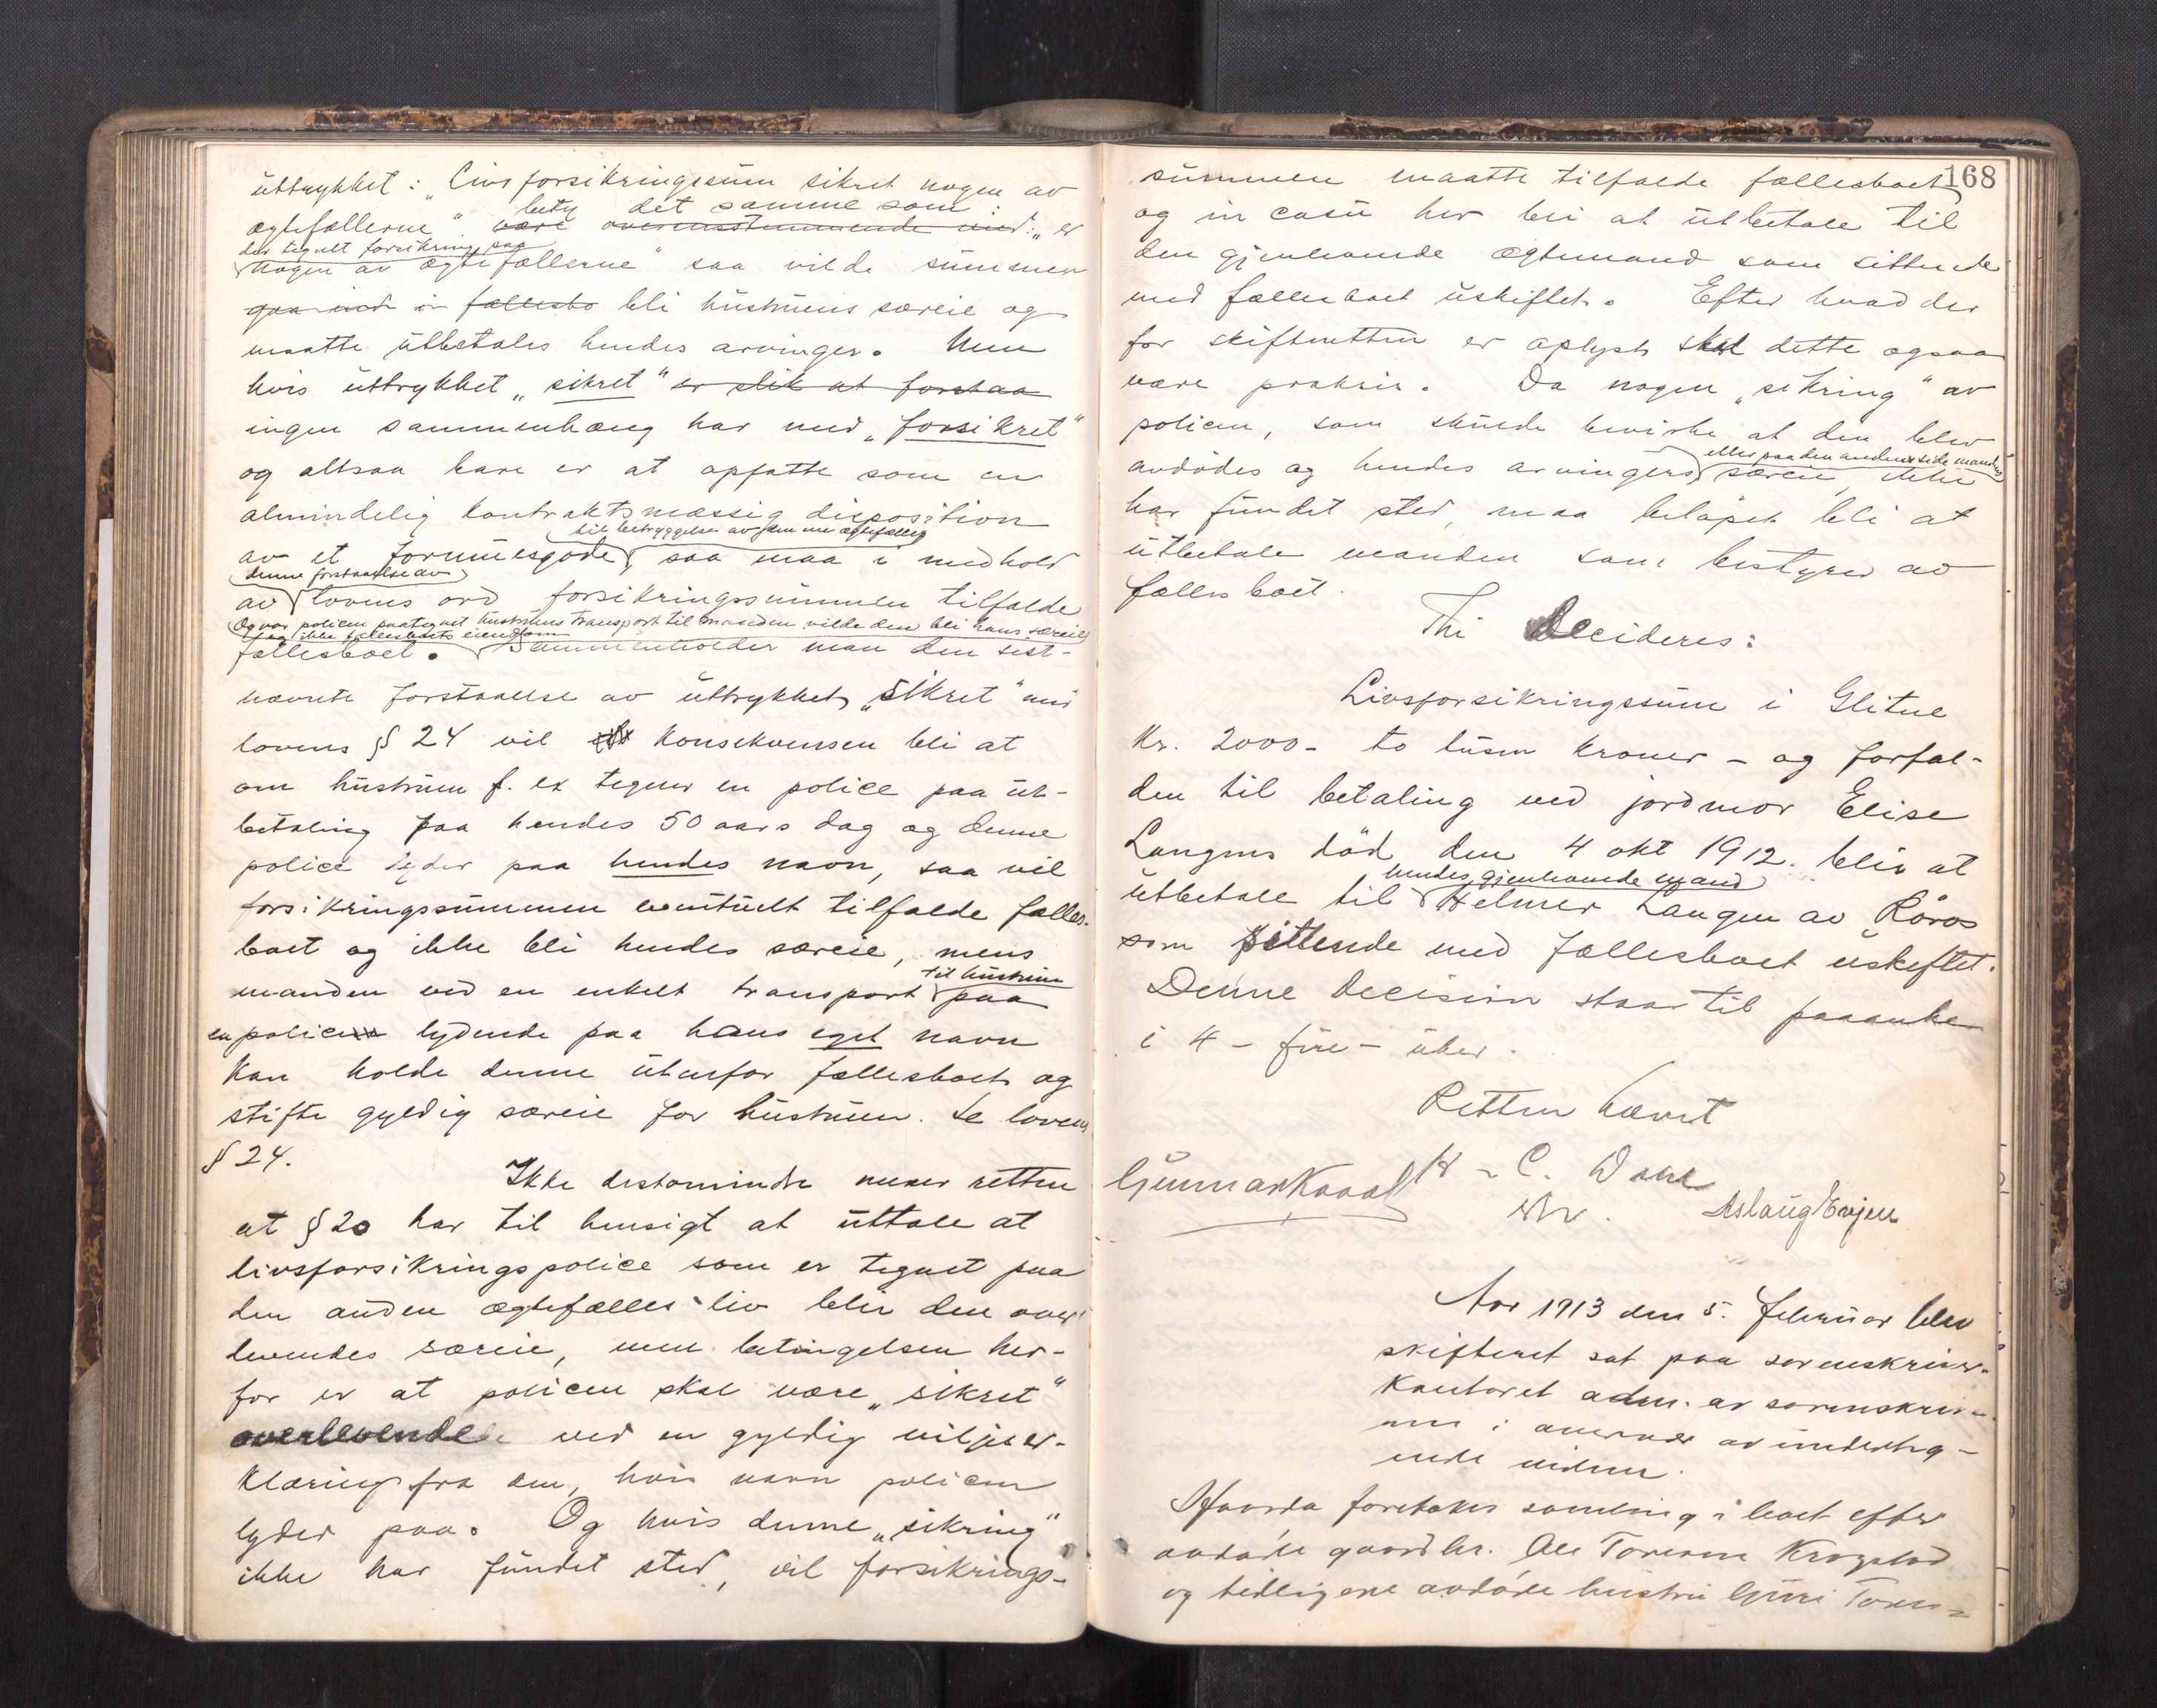 uttrykket: "Livsforsikringssum sikret nogen av
bety det samme som:
ægtefællerne" være overensstemmende med: "er
der tegnet forsikring paa
nogen av ægtefællerne" saa vilde summen
gaa ind i fællesbo bli hustruens særeie og
maatte utbetales hendes arvinger. Men
hvis uttrykket "sikret" er slik at forstaa
ingen sammenhæng har med "forsikret"
og altsaa bare er at opfatte som en
almindelig kontraktsmæssig disposition
til betryggelse av den ene ægtefælle
av et formuesgode, saa maa i medhold
denne forstaaelse av
av lovens ord forsikringssummen tilfalde
Og var policen paategnet hustruens transport til manden vilde den bli hans særeie
og ikke fællesboets eiendom
fællesboet. Sammenholder man den sist-
nævnte forstaaelse av uttrykket "sikret" med
lovens § 24 vil konsekvensen bli at
om hustruen f. ex tegner en police paa ut-
betaling paa hendes 50 aars dag og denne
police lyder paa hendes navn, saa vil
forsikringssummen eventuelt tilfalde fælles-
boet og ikke bli hendes særeie, mens
til hustruen
manden ved en enkelt transport paa
en policen lydende paa hans eget navn
kan holde denne utenfor fællesboet og
stifte gyldig særeie for hustruen. Se lovens
§ 24.
Ikke destomindre mener retten
at § 20 har til hensigt at uttale at
livsforsikringspolice som er tegnet paa
den anden ægtefælles liv blir den over
levendes særeie, men betingelsen her-
for er at policen skal være "sikret"
overlevende ved en gyldig viljeser-
klæring fra den, hvis navn policen
lyder paa. Og hvis denne "sikring"
ikke har fundet sted, vil forsikrings-
168
summen maatte tilfalde fællesboet
og in casu her bli at utbetale til
den gjenlevende ægtemand som sittende
med fællesboet uskiftet. Efter hvad der
for skifteretten er oplyst skal dette ogsaa
være praksis. Da nogen "sikring" av
policen, som skulde bevirke at den blev
eller paa den anden side mandens
avdødes og hendes arvingers særeie, ikke
har fundet sted, maa beløpet bli at
utbetale manden som bestyrer av
fællesboet.
Thi Decideres:
Livsforsikringssum i Glitne
Kr. 2000- to tusen kroner - og forfal-
den til betaling ved jordmor Elise
Langens død den 4 okt 1912. blir at
hendes gjenlevende mand
utbetale til Helmer Langen av Røros
som sittende med fællesboet uskiftet.
Denne decision staar til paaanke
i 4 - fire - uker.
Retten hævet
Gunnar Kaaal K - C. Dahl
Aslaug Evjen
Aar 1913 den 5. februar blev
skifteret sat paa sorenskriver-
kontoret adm. av sorenskrive-
ren i overvær av underteg-
nede vidner.
Hvorda foretokes samling i boet efter
avdøde gaardbr. Ole Toresen Krogstad
og tidligere avdøde hustru Guri Tores-